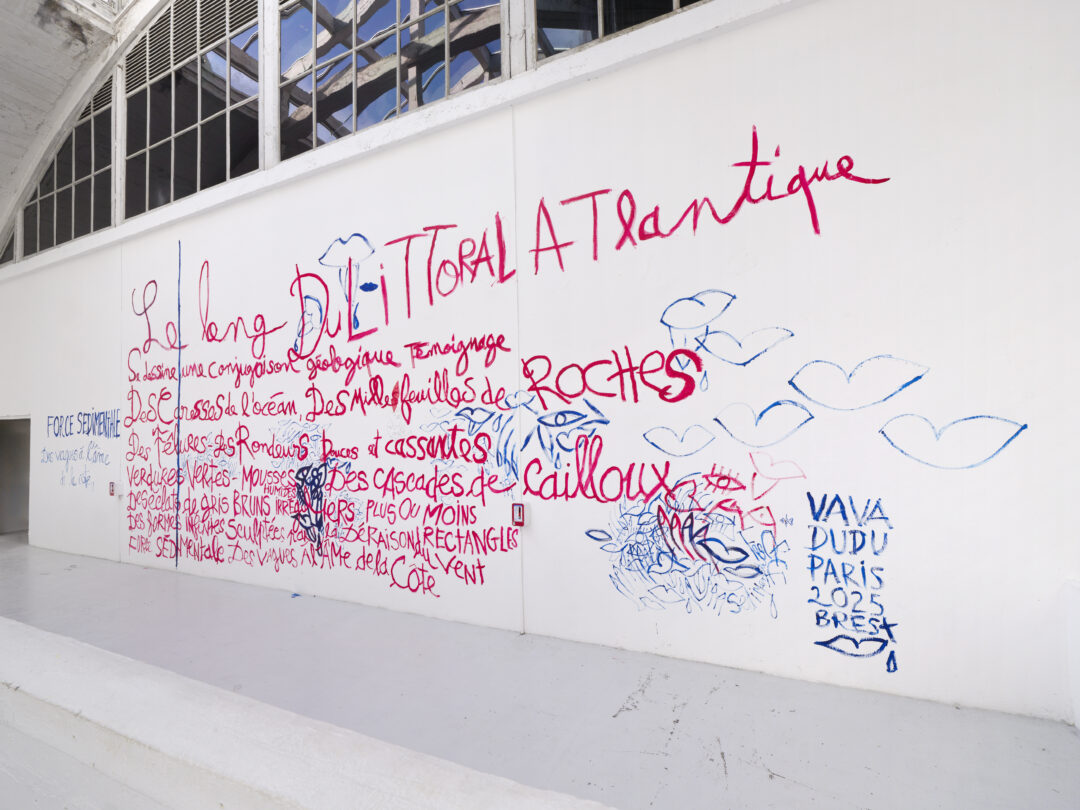 Le long Du LiTTORAL ATlantique
Se dessine une conjugaison géologique Témoignage
Des Caresses de l'océan, Des Mille feuilles de ROCHES
Des Fêlures des Rondeurs Douces et cassantes
VERDURES VERTES - MOUSSES HUMIDES DES CASCADES de Cailloux
DES éclats de GRIS BRUNS IRRÉGULIERS PLUS OU MOINS RECTANGLES
DES FORMES INFINITES Sculptées par la DÉRAISON du VENT
SEDIMENTALE Des VAGUES À l'ÂME de la Côte
FORCE SEDIMENTALE
Des vagues à l'âme
de la côte,
VAVA
DUDU
PARIS
2025
BREST